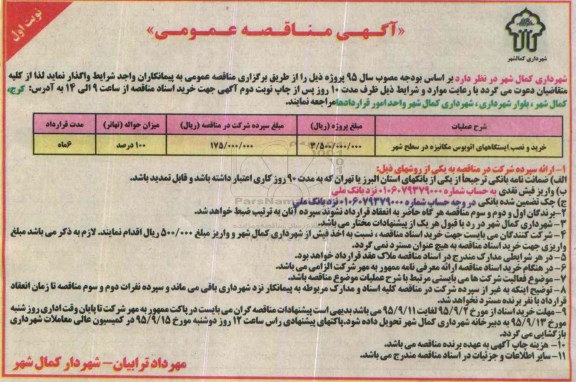 نوبت اول
«آگهی مناقصه عمومی»
شهرداری کمالشهر
شهرداری کمال شهر در نظر دارد بر اساس بودجه مصوب سال ۹۵ پروژه ذیل را از طریق برگزاری مناقصه عمومی به پیمانکاران واجد شرایط واگذار نماید لذا از کلیه
متقاضیان دعوت می گردد با رعایت موارد و شرایط ذیل ظرف مدت ۱۰ روز پس از چاپ نوبت دوم آگهی جهت خرید اسناد مناقصه از ساعت ۹ الی ۱۴ به آدرس: کرج،
کمال شهر ، بلوار شهرداری، شهرداری کمال شهر واحد امور قراردادها مراجعه نمایند.
شرح عملیات مبلغ پروژه (ریال) مبلغ سپرده شرکت در مناقصه (ریال) میزان حواله (تهاتر) مدت قرارداد
خرید و نصب ایستگاههای اتوبوس مکانیزه در سطح شهر ۳/۵۰۰/۰۰۰/۰۰۰ ۱۷۵/۰۰۰/۰۰۰ ۱۰۰ درصد ۶ماه
۱- ارائه سپرده شرکت در مناقصه به یکی از روشهای ذیل:
الف) ضمانت نامه بانکی ترجیحاً از یکی از بانکهای استان البرز یا تهران که به مدت ۹۰ روز کاری اعتبار داشته باشد و قابل تمدید باشد.
ب) واریز فیش نقدی به حساب شماره ۰۱۰۶۰۷۹۳۷۹۰۰۰ نزد بانک ملی
ج) چک تضمین شده بانکی در وجه حساب شماره ۰۱۰۶۰۷۹۳۷۹۰۰۰ نزد بانک ملی
۲- برندگان اول و دوم و سوم مناقصه هر گاه حاضر به انعقاد قرارداد نشوند سپرده آنان به ترتیب ضبط خواهد شد.
۳- شهرداری کمال شهر در رد یا قبول هر یک از پیشنهادات مختار می باشد.
۴- شرکت کنندگان می بایست جهت خرید اسناد مناقصه ، نسبت به اخذ فیش از شهرداری کمال شهر و واریز مبلغ ۵۰۰/۰۰۰ ریال اقدام نمایند. لازم به ذکر می باشد مبلغ
واریزی جهت خرید اسناد مناقصه به هیچ عنوان مسترد نمی گردد.
۵- در هر شرایطی مدارک مندرج در اسناد مناقصه ملاک عقد قرارداد خواهد بود.
۶- در هنگام خرید اسناد مناقصه ارائه معرفی نامه ممهور به مهر شرکت الزامی می باشد.
۷- موضوع فعالیت شرکت ها می بایستی مرتبط با شرح عملیات موضوع مناقصه باشد.
۸- توضیح اینکه به غیر از سپرده شرکت در مناقصه کلیه اسناد و مدارک مربوطه به پیمانکار نزد شهرداری باقی می ماند و سپرده نفرات دوم و سوم مناقصه تا زمان انعقاد
قرارداد با نفر برنده مسترد نخواهد شد.
۹- مهلت خرید اسناد از مورخ ۹۵/۹/۲ لغایت ۹۵/۹/۱۱ می باشد بدیهی است پیشنهادات مناقصه گران می بایست در پاکت ممهور به مهر شرکت تا پایان وقت اداری روز شنبه
مورخ ۹۵/۹/۱۳ به دبیرخانه شهرداری کمال شهر تحویل داده شود. پاکتهای پیشنهادی راس ساعت ۱۲ روز دوشنبه مورخ ۹۵/۹/۱۵ در کمیسیون عالی معاملات شهرداری
بازگشایی می گردد.
۱۰- هزینه چاپ آگهی به عهده برنده مناقصه می باشد.
۱۱- سایر اطلاعات و جزئیات در اسناد مناقصه مندرج می باشد.
مهرداد ترابیان - شهردار کمال شهر